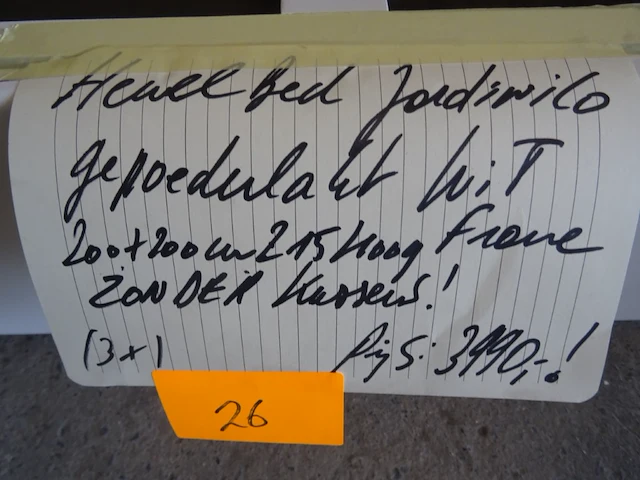 Hemel Bed Jardinico
gepoederlakt WiT
200+200cm 215 Hoog Frame
ZONDER Kussens!
(3x) Prijs: 3990,-!
26